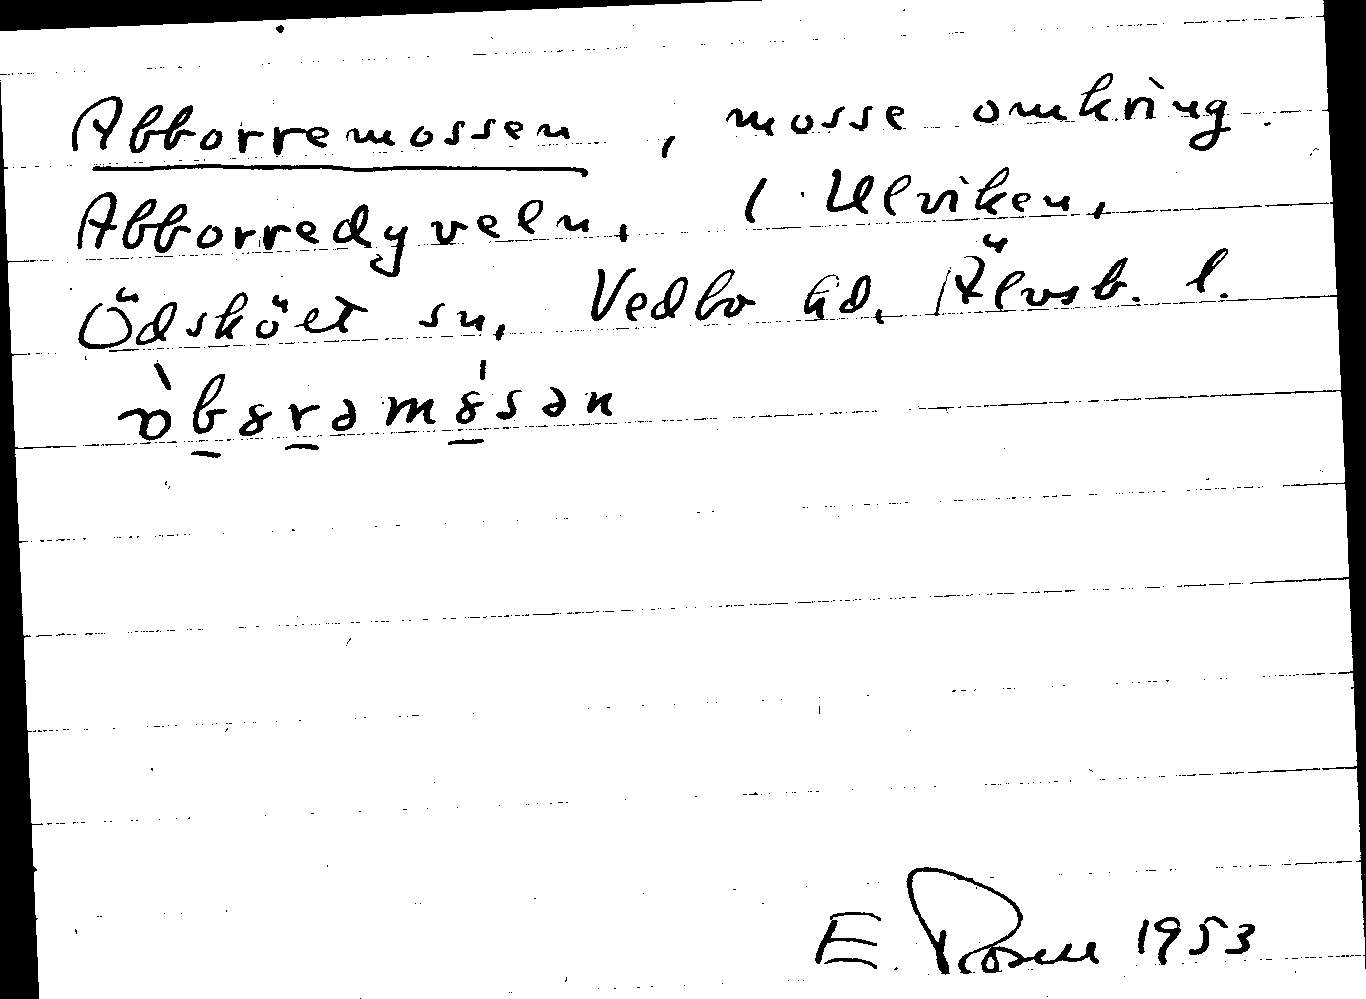 Abborremossen, mosse omkring
Abborredyveln, i Ulviken,
Ödsköet sn, Vedbo hd, Älvsb. l.
E. Rosell 1953